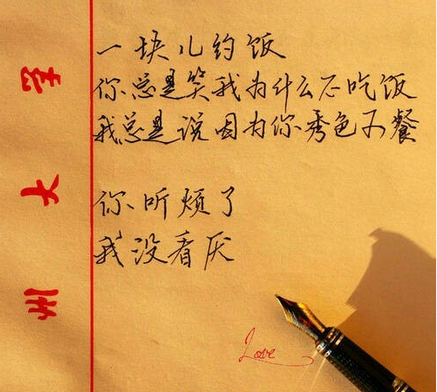 一块儿约饭
你总是笑我为什么不吃饭
我总是说因为你秀色可餐
你听烦了
我没看厌
Love
大
州